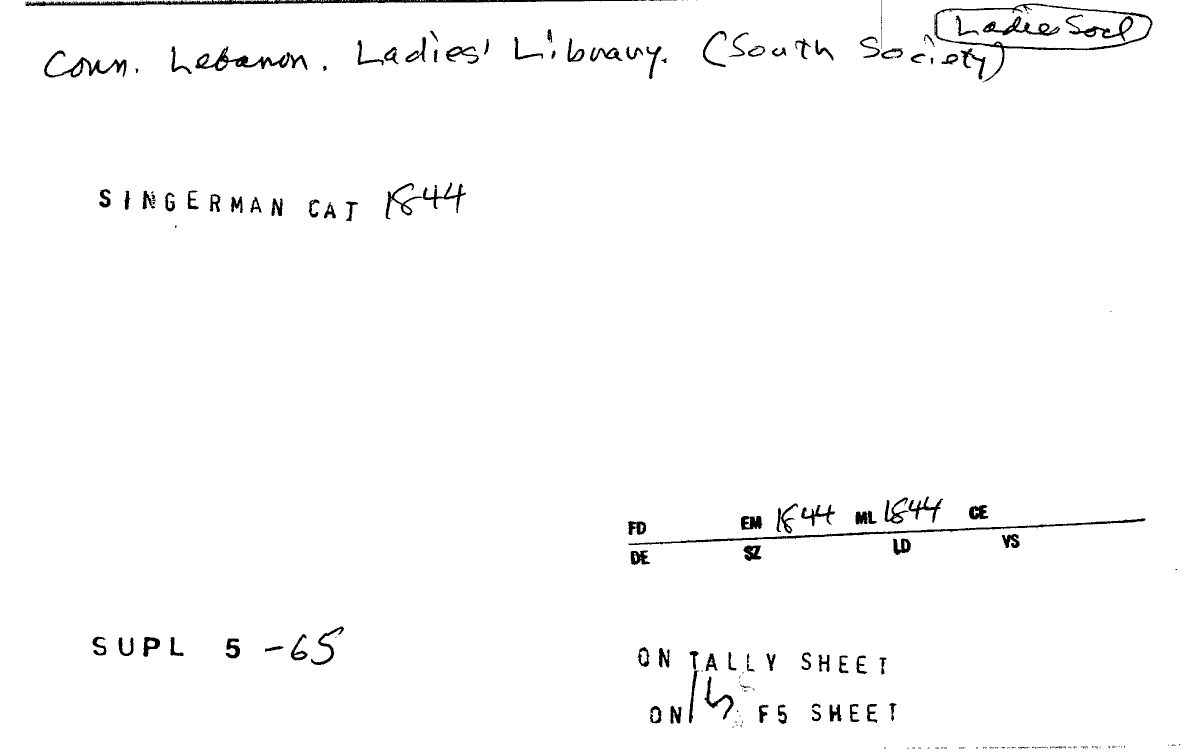 Ladies Socl
Conn. Lebanon. Ladies' Library. (South Society)
SINGERMAN CAT 1844
FD EM 1844 ML 1844 CE
DE SZ LD VS
SUPL 5 -65
ON TALLY SHEET
ON F5 SHEET